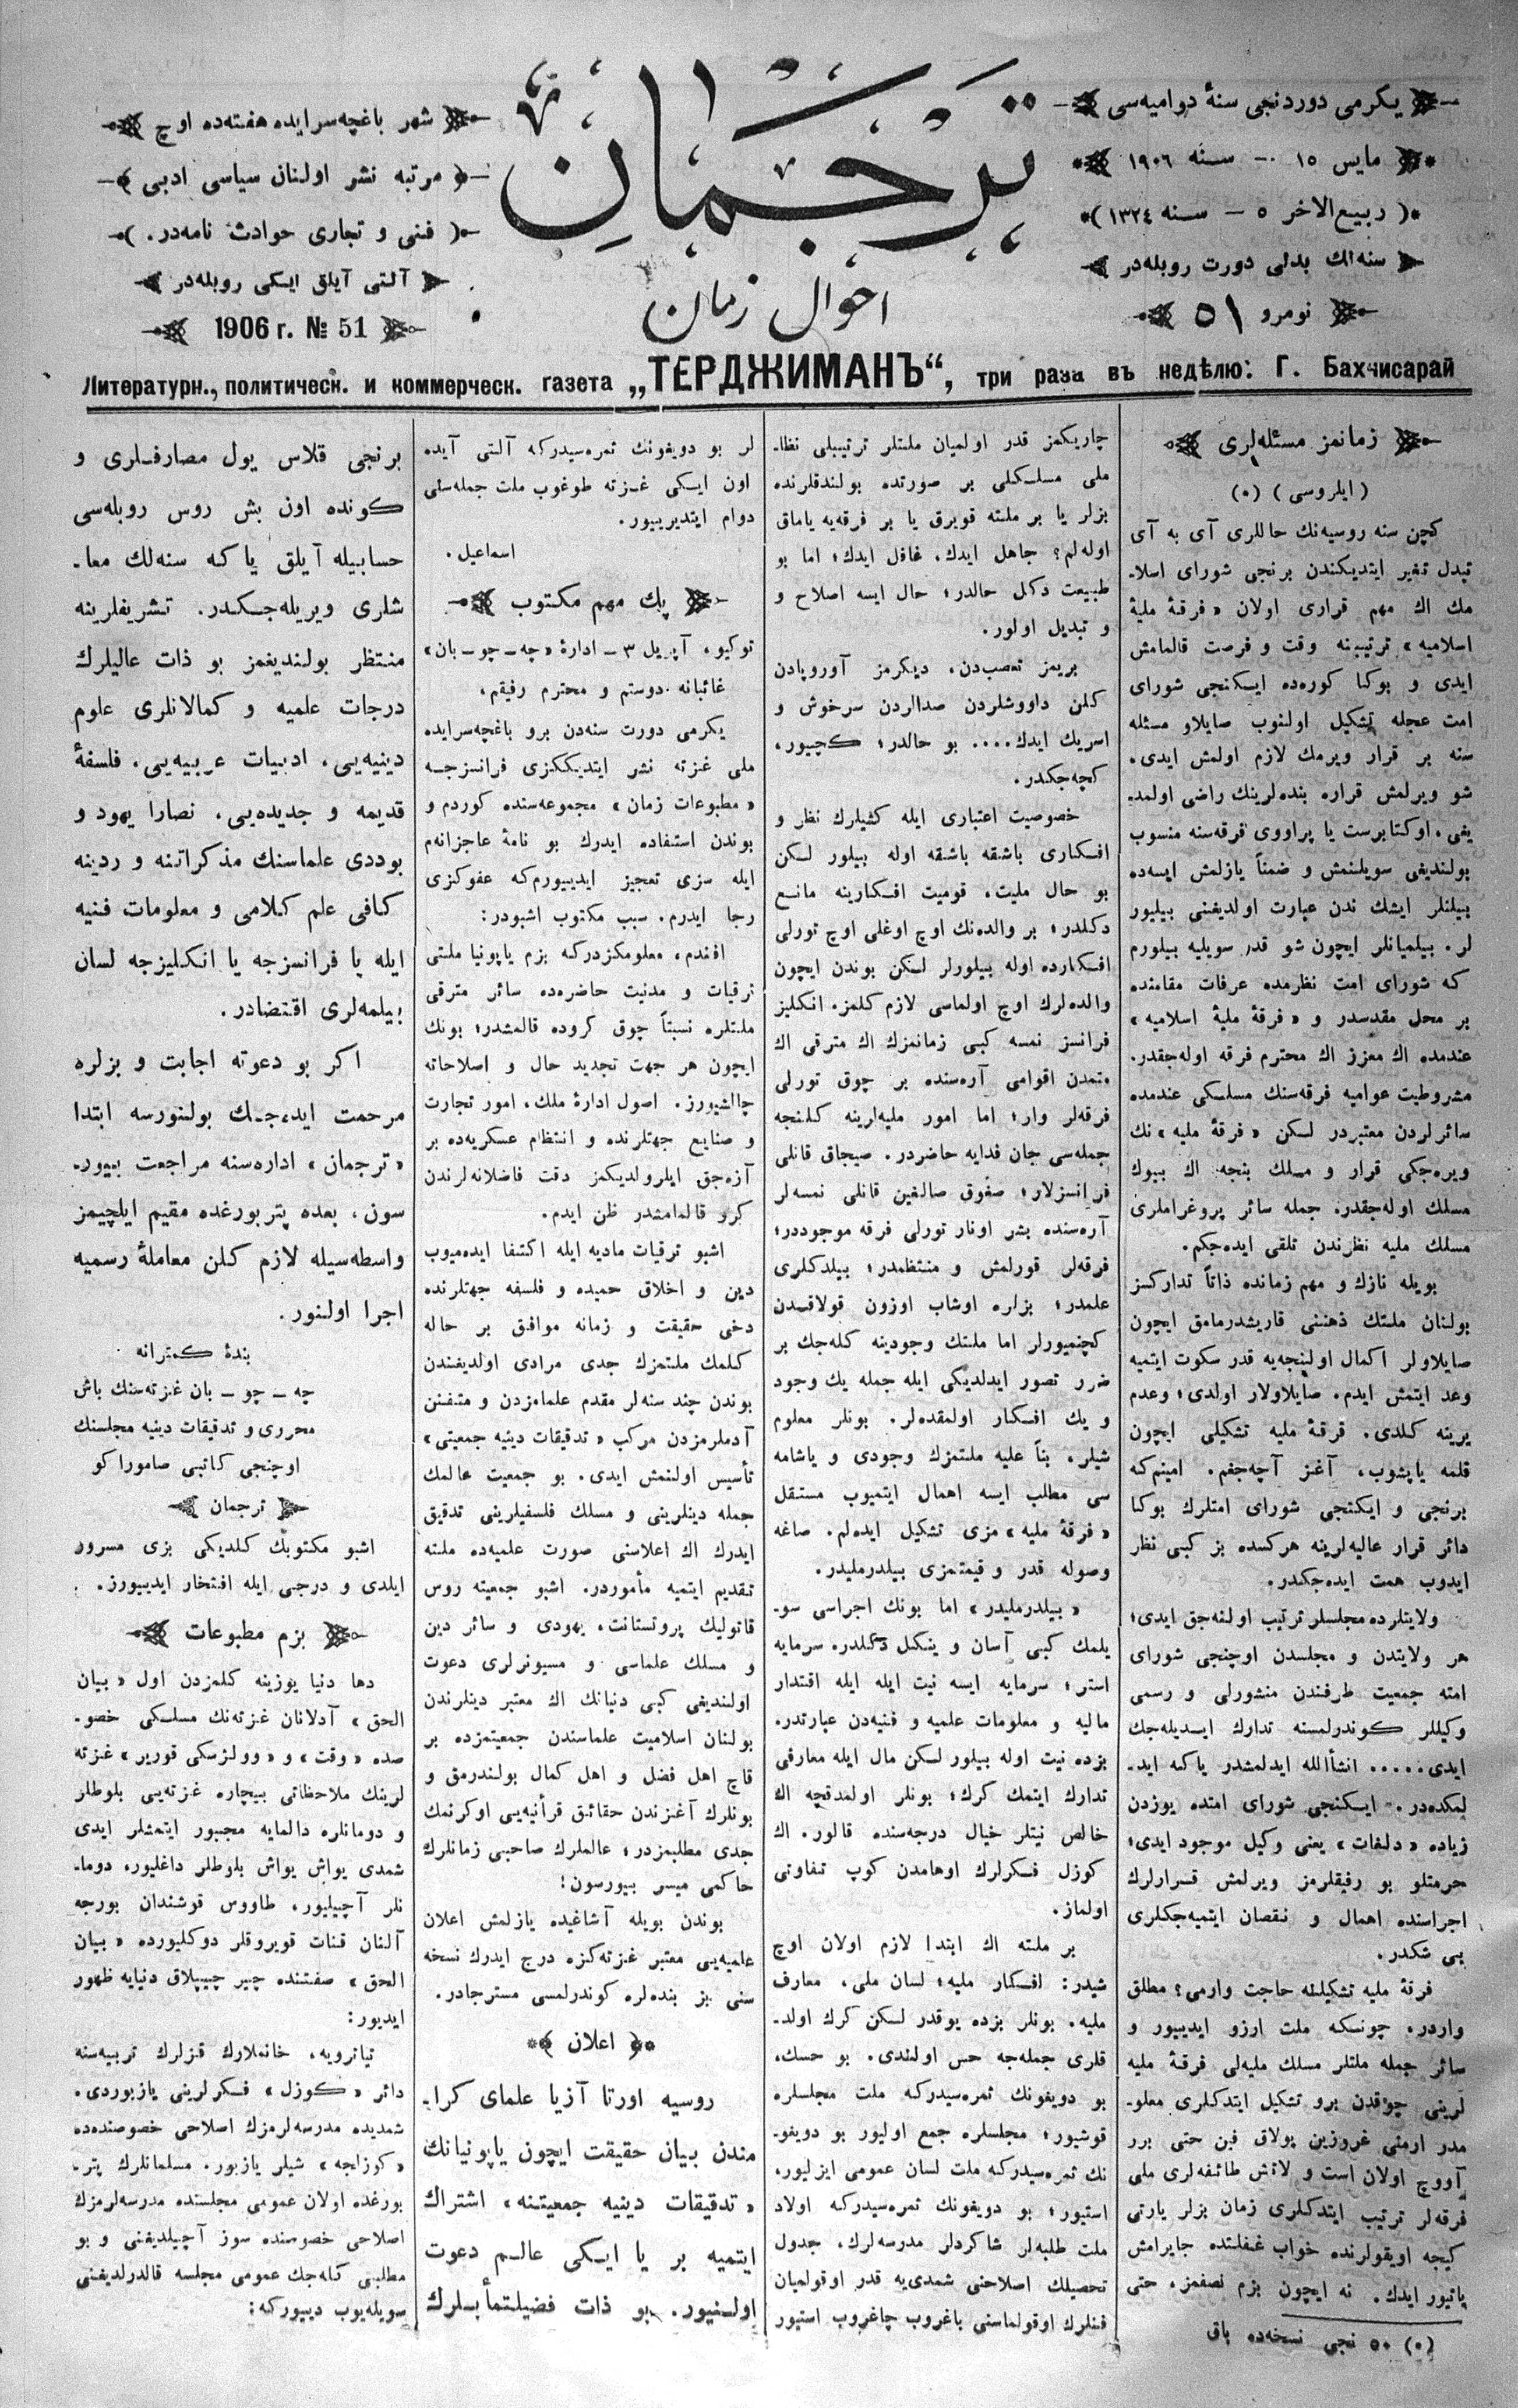 یكرمی دوردنجی سنهٔ دوامیه‌سی
مایس ١٥ — سـنه ١٩٠٦
(ربیع‌الاخر ٥ — سـنه ١٣٢٤)
سنه‌لك بدلی دورت روبله‌در
نومرو ٥١
ترجمان
احوال زمان
شهر باغچه‌سرایده هفته‌ده اوچ
مرتبه نشر اولنان سیاسی ادبی
(فـنی و تجاری حوادث نامه‌در.)
آلتی آیلق ایـكی روبله‌در
1906 г. № 51
Литературн., политическ. и коммерческ. газета „ТЕРДЖИМАНЪ“, три раза въ недѣлю: Г. Бахчисарай
زمانمز مسئله‌لری
(ایلروسی) (٠)
كچن سنه روسیه‌نك حاللری آی به آی
تبدل تغیر ایتدیكندن برنجی شورای اسلا-
مك اك مهم قراری اولان «فرقهٔ ملیهٔ
اسلامیه» ترتیبنه وقت و فرصت قالمامش
ایدی و بوكا كوره‌ده ایـكنجی شورای
امت عجله تشكیل اولنوب صایلاو مسئله
سنه بر قرار ویرمك لازم اولمش ایدی.
شو ویرلمش قراره بنده‌لرینك راضی اولمد-
یغی، اوكتابرست یا پراووی فرقه‌سنه منسوب
بولندیغی سویلنمش و ضمناً یازلمش ایسه‌ده
بیلنلر ایشك ندن عبارت اولدیغنی بیلیور
لر. بیلمیانلر ایچون شو قدر سویلیه بیلورم
كه شورای امت نظرمده عرفات مقامنده
بر محل مقدسدر و «فرقهٔ ملیهٔ اسلامیه»
عندمده اك معزز اك محترم فرقه اوله‌جقدر.
مشروطیت عوامیه فرقه‌سنك مسلـكی عندمده
سائرلردن معتبردر لـكن «فرقهٔ ملیه»نك
ویره‌جكی قرار و مسلك بنجه اك بیوك
مسلك اوله‌جقدر. جمله سائر پروغراملری
مسلك ملیه نظرندن تلقی ایده‌جكم.
بویله نازك و مهم زمانده ذاتاً تداركسز
بولنان ملتك ذهننی قاریشدرمامق ایچون
صایلاولر اكمال اولنجه‌یه قدر سكوت ایتمیه
وعد ایتمش ایدم. صایلاولار اولدی؛ وعدم
یرینه كلدی. فرقهٔ ملیه تشكیلی ایچون
قلمه یاپشوب، آغز آچه‌جغم. امینم‌كه
برنجی و ایكنجی شورای امتلرك بوكا
دائر قرار عالیه‌لرینه هركسده بز كبی نظر
ایدوب همت ایده‌جكدر.
ولایتلرده مجلسلر ترتیب اولنه‌جق ایدی؛
هر ولایتدن و مجلسدن اوچنجی شورای
امته جمعیت طرفندن منشورلی و رسمی
وكیللر كـوندرلمسنه تدارك ایـدیله‌جك
ایدی..... انشأالله ایدلمشدر یاكه اید-
لمكده‌در. ایـكنجی شورای امتده یوزدن
زیاده «دلغات» یعنی وكیل موجود ایدی؛
حرمتلو بو رفیقلرمز ویرلمش قـرارلرك
اجراسنده اهمال و نـقصان ایتمیه‌جكلری
بی شكدر.
فرقهٔ ملیه تشكیلنه حاجت وارمی؟ مطلق
واردر، چونـكه ملت ارزو ایدییور و
سائر جمله ملتلر مسلك ملیه‌لی فرقهٔ ملیه
لرینی چوقدن برو تشكیل ایتدكلری معلو-
مدر ارمنی غروزین پولاق فین حتی برر
آووچ اولان است و لاتش طائفه‌لری ملی
فرقه‌لر ترتیب ایتدكلری زمان بزلر یارتی
كیجه اویقولرنده خواب غـفلتده جایرامش
یاتیور ایدك. نه ایچون بزم نصفمز، حتی
(٠) ٥٠ نجی نسخه‌ده باق
چاریكمز قدر اولمیان ملتلر ترتیبلی نظا-
ملی مسلـكلی بر صورتده بولندقلرنده
بزلر یا بر ملته قویرق یا بر فرقه‌یه یاماق
اوله‌لم؟ جاهل ایدك، غافل ایدك؛ اما بو
طبیعت دكل حالدر؛ حال ایسه اصلاح و
و تبدیل اولور.
بریمز تعصب‌دن، دیكرمز آوروپادن
كلن داووشلردن صدالردن سرخوش و
اسریك ایدك.... بو حالدر؛ كـچیور،
كچه‌جكدر.
خصوصیت اعتباری ایله كشیلرك نظر و
افـكاری باشقه باشقه اوله بیلور لـكن
بو حال ملیت، قومیت افـكارینه مانـع
دكلدر؛ بر والده‌نك اوچ اوغلی اوچ تورلی
افـكارده اوله بیلورلر لـكن بوندن ایچون
والده‌لرك اوچ اولماسی لازم كلمز. انكلیز
فرانسز نمسه كبی زمانمزك اك مترقی اك
متمدن اقوامی آره‌سنده بر چوق تورلی
فرقه‌لر وار؛ اما امور ملیه‌لرینه كلنجه
جمله‌سی جان فدایه حاضردر. صیجاق قانلی
فرانسزلار؛ صغوق صالغین قانلی نمسه‌لر
آره‌سنده بشر اونار تورلی فرقه موجوددر؛
فرقه‌لر قورلمش و منتظمدر؛ بیلدكلری
علمدر؛ بزلره اوشاب اوزون قولاقـدن
كچنمیورلر اما ملتك وجودینه كله‌جك بر
ضرر تصور ایدلدیكی ایله جمله یك وجود
و یك افـكار اولمقده‌لر. بونلر معلوم
شیلر، بناً علیه ملتمزك وجودی و یاشامه
سی مطلب ایسه اهمال ایتمیوب مستـقل
«فرقهٔ ملیه»مزی تشكیل ایده‌لم. صاغه
وصوله قدر و قیمتمزی بیلدرملیدر.
«بیلدرملیدر» اما بونك اجراسی سو-
یلمك كبی آسان و ینـكل دكلدر. سرمایه
استر؛ سرمایه ایسه نیت ایله ایله اقتدار
مالیه و معلومات علمیه و فنیه‌دن عبارتدر.
بزده نیت اوله بیلور لـكن مال ایله معارفی
تدارك ایتمك كرك؛ بونلر اولمدقچه اك
خالص نیتلر خیال درجه‌سنده قالور. اك
كوزل فـكرلرك اوهامدن كوپ تـفاوتی
اولماز.
بر ملته اك ابتدا لازم اولان اوچ
شیدر: افـكار ملیه؛ لسان ملی، معارف
ملیه. بونلر بزده یوقدر لـكن كرك اولد-
قلری جمله‌جه حس اولندی. بو حسك،
بو دویغونك ثمره‌سیدركه ملت مجلسلره
قوشیور؛ مجلسلره جمع اولیور بو دویغو-
نك ثمره‌سیدركه ملت لسان عمومی ایزلیور،
استیور؛ بو دویغونك ثمره‌سیدركه اولاد
ملت طلبه‌لر شاكردلر مدرسه‌لرك، جدول
تحصیلك اصلاحنی شمدی‌یه قدر اوقولمیان
فـنلرك اوقولماسنی باغروب چاغروب استیور
لر بو دویغونك ثمره‌سیدركه آلـتی آیده
اون ایـكی غـزته طوغوب ملت جمله‌سنی
دوام ایتدیرییور.
اسماعیل.
پك مهم مكتوب
توكیو، آپریل ٣ـ ادارهٔ «چه‌ـ‌چوـ‌بان»
غائبانه دوستم و محترم رفیقم،
یكرمی دورت سنه‌دن برو باغچه‌سرایده
ملی غزته نشر ایتدیكـكزی فرانسزجـه
«مطبوعات زمان» مجموعه‌سنده كوردم و
بوندن استفاده ایدرك بو نامهٔ عاجزانه‌م
ایله سزی تعجیز ایدییورم‌كه عفوكزی
رجا ایدرم. سبب مكتوب اشبودر:
افندم، معلومكزدركه بزم یاپونیا ملتی
ترقیات و مدنیت حاضره‌ده سائر مترقی
ملتلره نسبتاً چوق كروده قالمشدر؛ بونك
ایچون هر جهت تجدید حال و اصلاحاته
چالشیورز. اصول ادارهٔ ملك، امور تجارت
و صنایع جهتلرنده و انتظام عسكریه‌ده بر
آزه‌جق ایلرولدیكمز دقت فاضلانه‌لرندن
كرو قالمامشدر ظن ایدم.
اشبو ترقیات مادیه ایله اكتفا ایده‌میوب
دین و اخلاق حمیده و فلسفه جهتلرنده
دخی حقیقت و زمانه موافق بر حاله
كلمك ملتمزك جدی مرادی اولدیغندن
بوندن چند سنه‌لر مقدم علمامزدن و متفنن
آدملرمزدن مركب «تدقیقات دینیه جمعیتی»
تأسیس اولنمش ایدی. بو جمعیت عالمك
جمله دینلرینی و مسلك فلسفیلرینی تدقیق
ایدرك اك اعلاسنی صورت علمیه‌ده ملته
تـقدیم ایتمیه مأموردر. اشبو جمعیته روس
قاتولیك پروتستانت، یهودی و سائر دین
و مسلك علماسی و مسیونرلری دعوت
اولندیغی كبی دنیانك اك معتبر دینلرندن
بولنان اسلامیت علماسندن جمعیتمزده بر
قاچ اهل فضل و اهل كمال بولندرمق و
بونلرك آغزندن حقائق قرأنیه‌یی اوكرنمك
جدی مطلبمزدر؛ عالملرك صاحبی زمانلرك
حاكمی میسر بیورسون!
بوندن بویله آشاغیده یازلمش اعلان
علمیه‌یی معتبر غزته‌كزه درج ایدرك نسخه
سنی بز بنده‌لره كوندرلمسی مسترجادر.
اعلان
روسیه اورتا آزیا علمای كرا-
مندن بیان حقیقت ایچون یاپونیانك
«تدقیقات دینیه جمعیتـنه» اشتراك
ایتمیه بر یا ایـكی عالـم دعوت
اولـنیور. بو ذات فضیلـتمأبـلرك
برنجی قلاس یول مصارفـلری و
كـونده اون بش روس روبله‌سی
حسابیله آیلق یاكه سنه‌لك معا-
شلری ویریله‌جـكـدر. تـشریفلرینه
منتظر بولندیغمز بو ذات عالیلرك
درجات علمیه و كمالاتلری علوم
دینیه‌یی، ادبیات عربیه‌یی، فلسفهٔ
قدیمه و جدیده‌یی، نصارا یهود و
بوددی علماسنك مذكراتنه و ردینه
كافی علم كلامی و معلومات فـنیه
ایله یا فرانسزجه یا انـكلیزجه لسان
بیلمه‌لری اقـتضادر.
اكر بو دعوته اجابت و بزلره
مرحمت ایده‌جـك بولنورسه ابتدا
«ترجمان» اداره‌سنه مراجعت بیور-
سون، بعده پتربورغده مقیم ایلچیمز
واسطه‌سیله لازم كلن معاملهٔ رسمیه
اجرا اولـنور.
بندهٔ كـمترانه
چه ـ چو ـ بان غزته‌سنك باش
محرری و تدقیقات دینیه مجلسنك
اوچنجی كاتبی صاموراكو
ترجمان
اشبو مكتوبك كلدیكی بزی مسرور
ایلدی و درجی ایله افتخار ایدییورز.
بزم مطبوعات
دها دنیا یوزینه كلمزدن اول «بیان
الحق» آدلانان غـزته‌نك مسلـكی خصو-
صده «وقت» و «وولـژسكی قوریر» غـزته
لرینك ملاحظاتی بیچاره غـزته‌یی بلوطلر
و دومانلره دالمایه مجبور ایتمشلر ایدی
شمدی یواش یواش بلوطلر داغلیور، دوما-
نلر آچیلیور، طاووس قوشندان بورجه
آلنان قنات قویروقلر دوكلیورده «بیان
الحق» صفتنده چیر چیپلاق دنیایه ظهور
ایدیور:
تیاترویه، خانملارك قـزلرك تربیه‌سنه
دائر «كـوزل» فـكرلرینی یازیوردی.
شمدیده مدرسه‌لرمزك اصلاحی خصوصنده‌ده
«كوزلجه» شیلر یازیور. مسلمانلرك پتر-
بورغده اولان عمومی مجلسنده مدرسه‌لرمزك
اصلاحی خصوصنده سوز آچیلدیغنی و بو
مطلبی كله‌جك عمومی مجلسه قالدرلدیغنی
سویله‌یوب دییوركه: